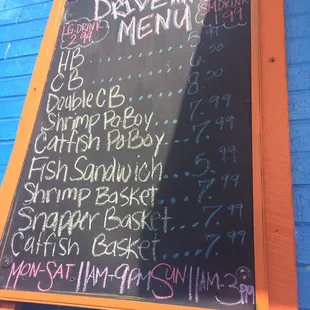 DRIVE IN
MENU
LG. DRINK
2.99
SM DRINK
1.99
HB
CB
Double CB 8.
Shrimp PoBoy 7.99
Catfish PoBoy 7.99
Fish Sandwich 5.99
Shrimp Basket 7.99
Snapper Basket 7.99
Catfish Basket 7.99
MON-SAT. 11AM-9PM SUN 11AM-3PM